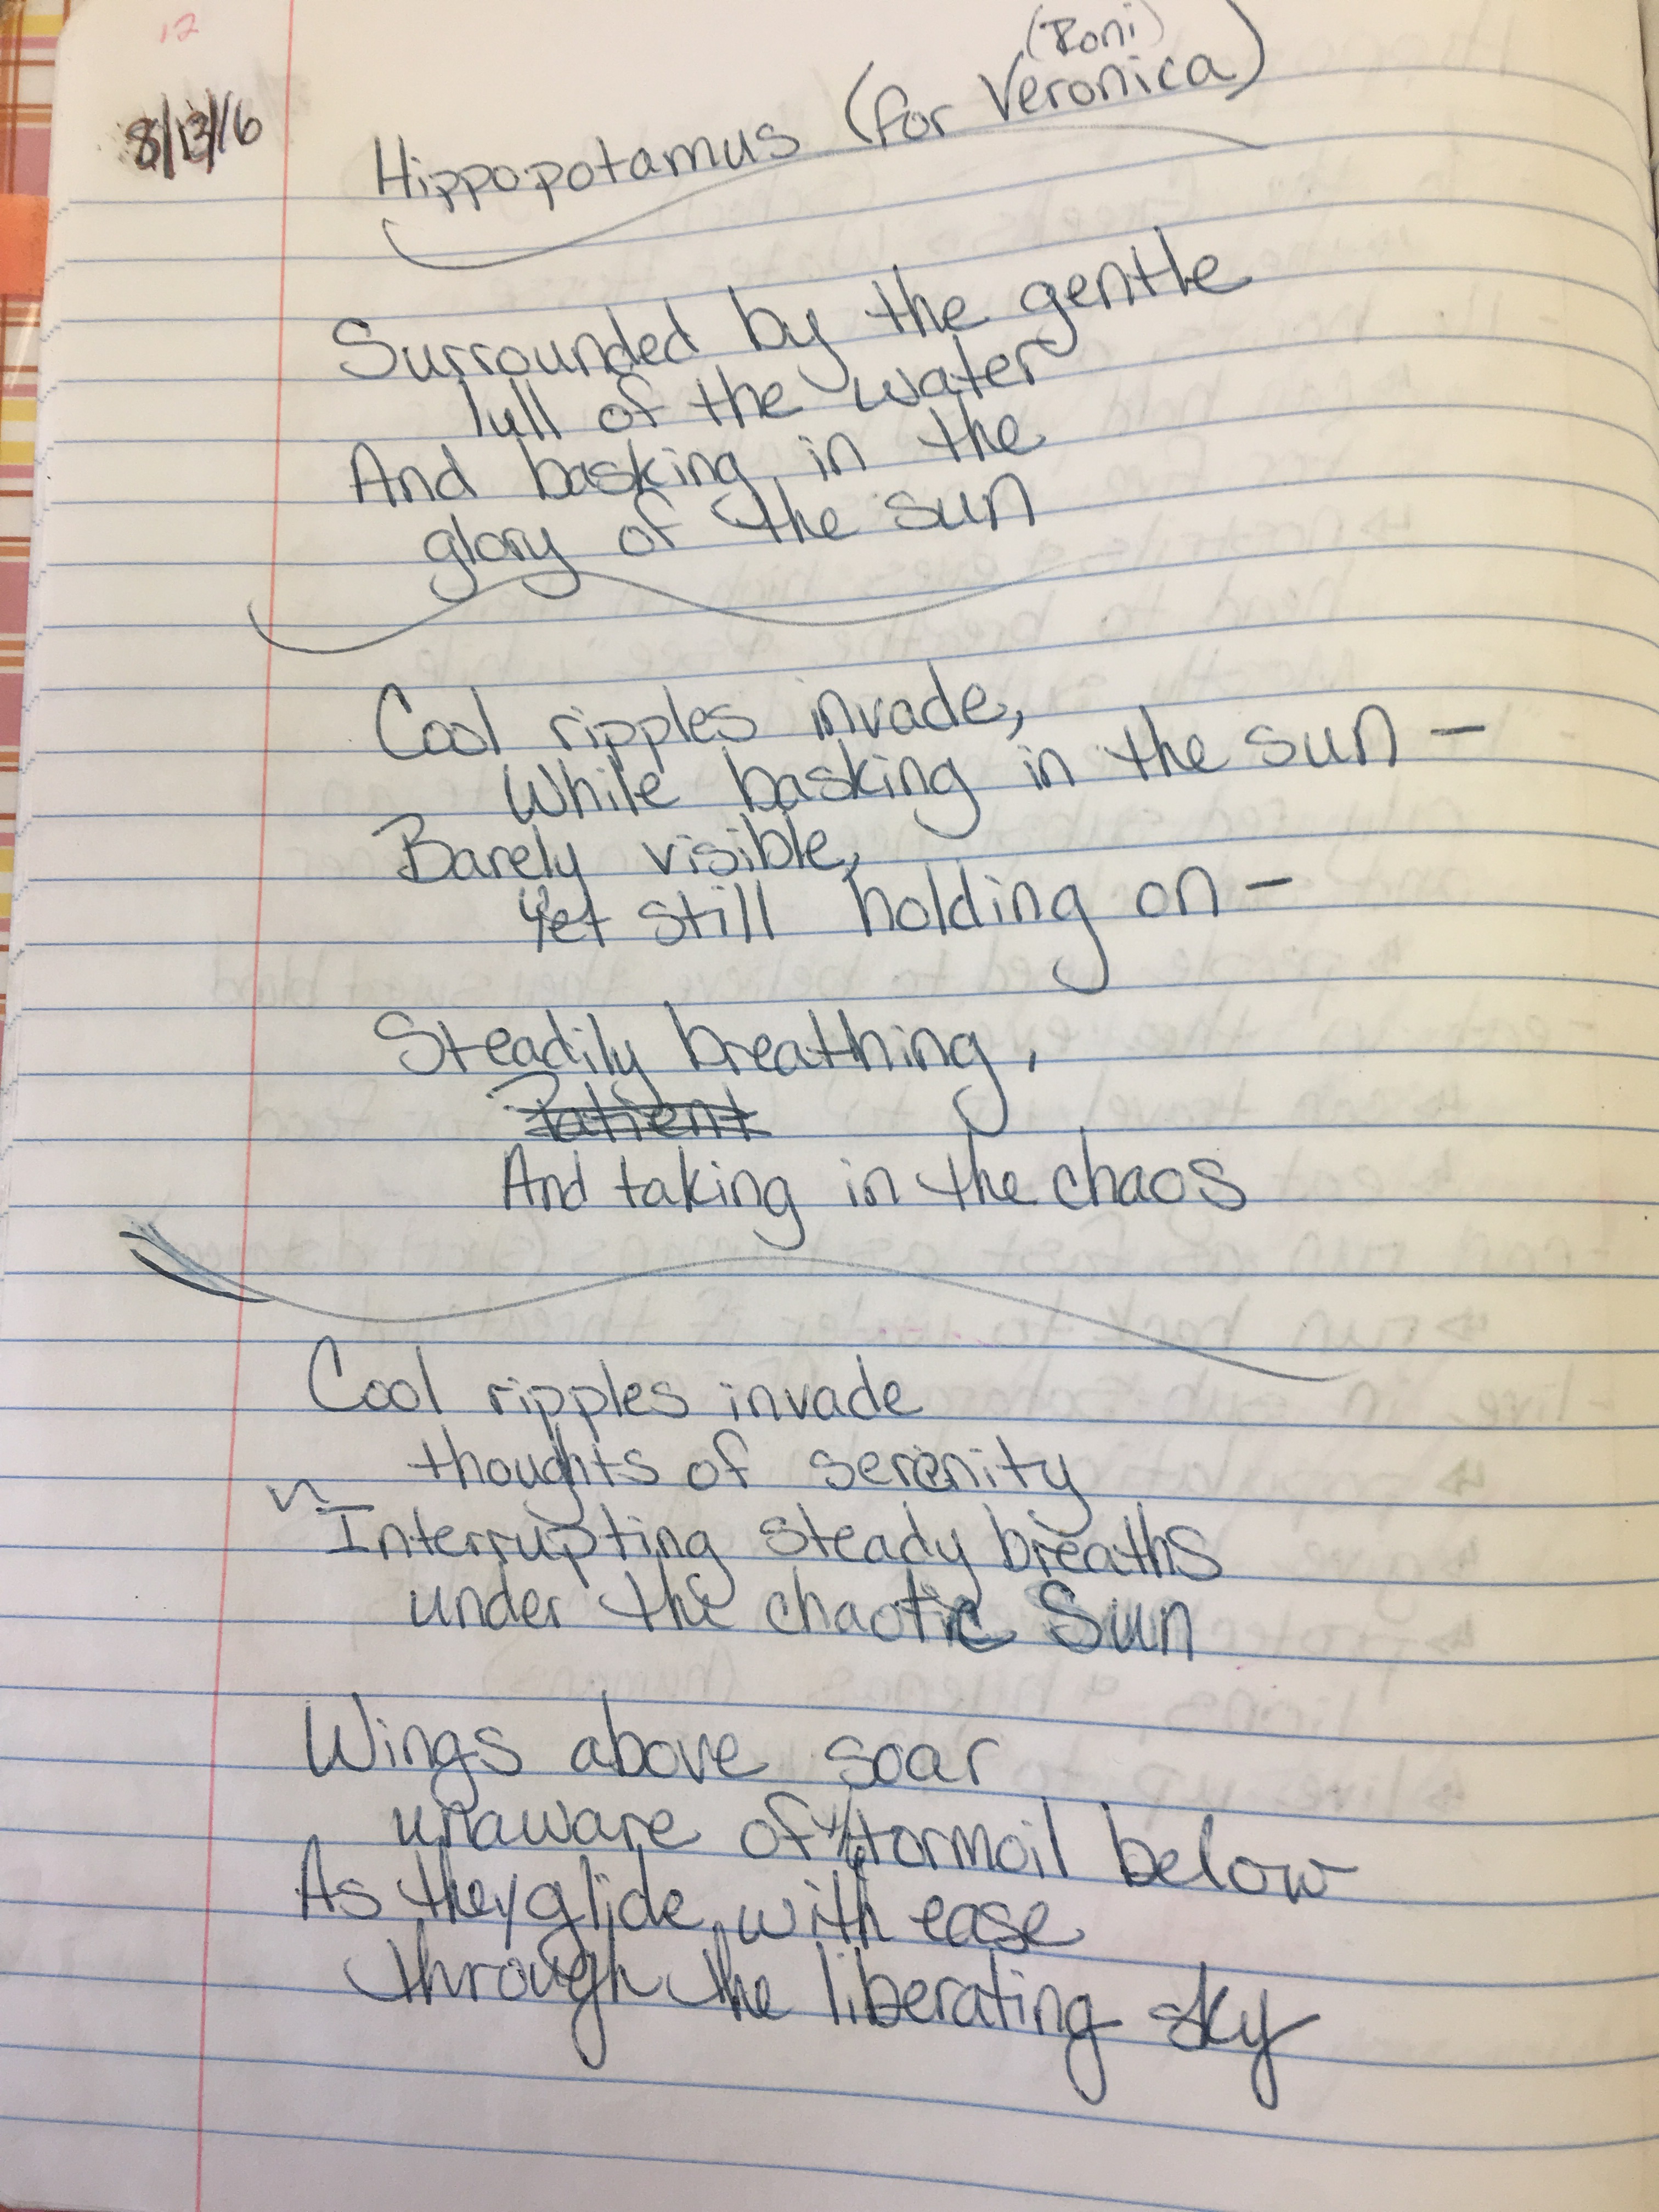 12
(Roni)
8/13/16
Hippopotamus (for Veronica)
Surrounded by the gentle
lull of the water
And basking in the
glory of the sun
Cool ripples invade,
While basking in the sun –
Barely visible,
Yet still holding on –
Steadily breathing,
Patient
And taking in the chaos
Cool ripples invade
thoughts of serenity
Interrupting steady breaths
under the chaotic Sun
Wings above soar
unaware of tormoil below
As they glide with ease
through the liberating sky